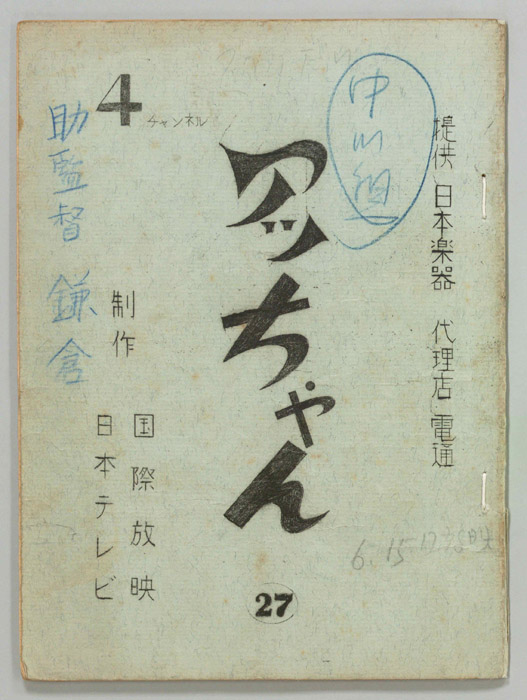 中川組
提供 日本楽器 代理店 電通
アッちゃん
27
4チャンネル
制作
国際放映
日本テレビ
助監督 鎌倉
6.15